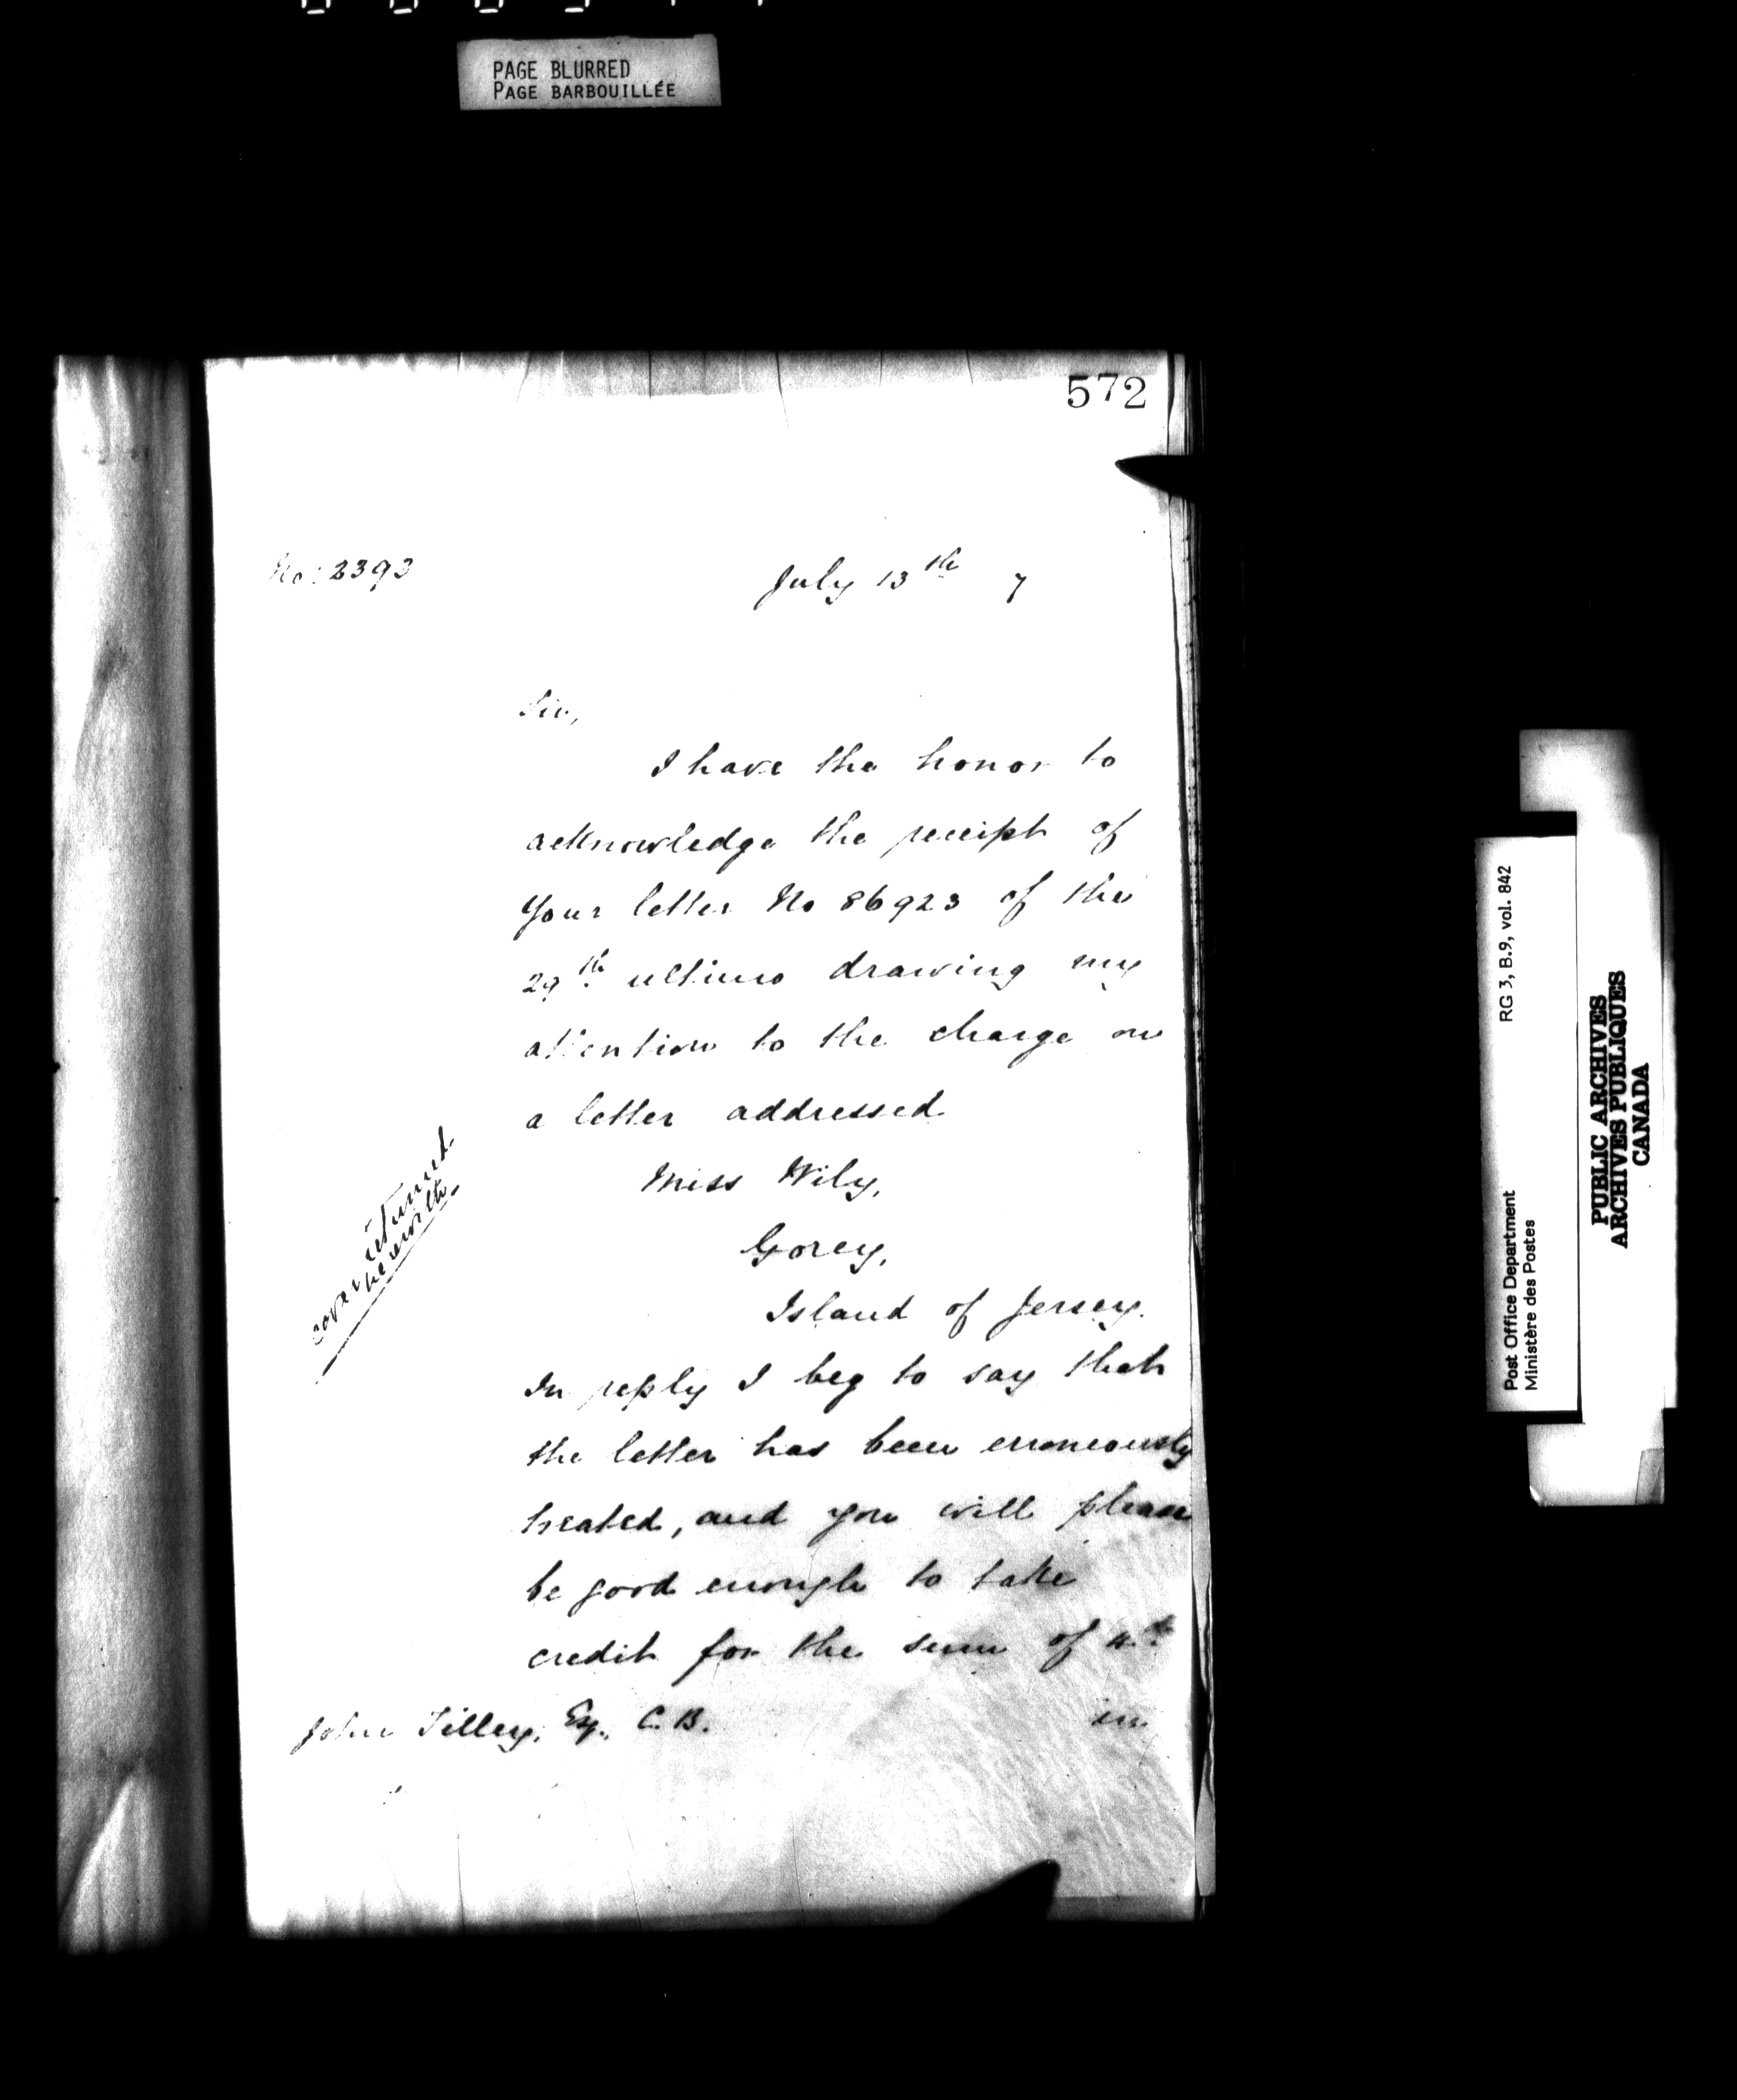 PAGE BLURRED
PAGE BARBOUILLÉE
572
No: 2393
July 13th 7
Sir,
I have the honor to
acknowledge the receipt of
Your letter No 86923 of the
29th ultimo drawing my
attention to the charge on
a letter addressed
Miss Wily,
Gorey,
Island of Jersey.
cover returned
herewith.
In reply I beg to say that
the letter has been erroneously
treated, and you will please
be good enough to take
credit for the sum of 4d.
John Tilley, Esq., C.B.
in
Post Office Department RG 3, B.9, vol. 842
Ministère des Postes
PUBLIC ARCHIVES
ARCHIVES PUBLIQUES
CANADA